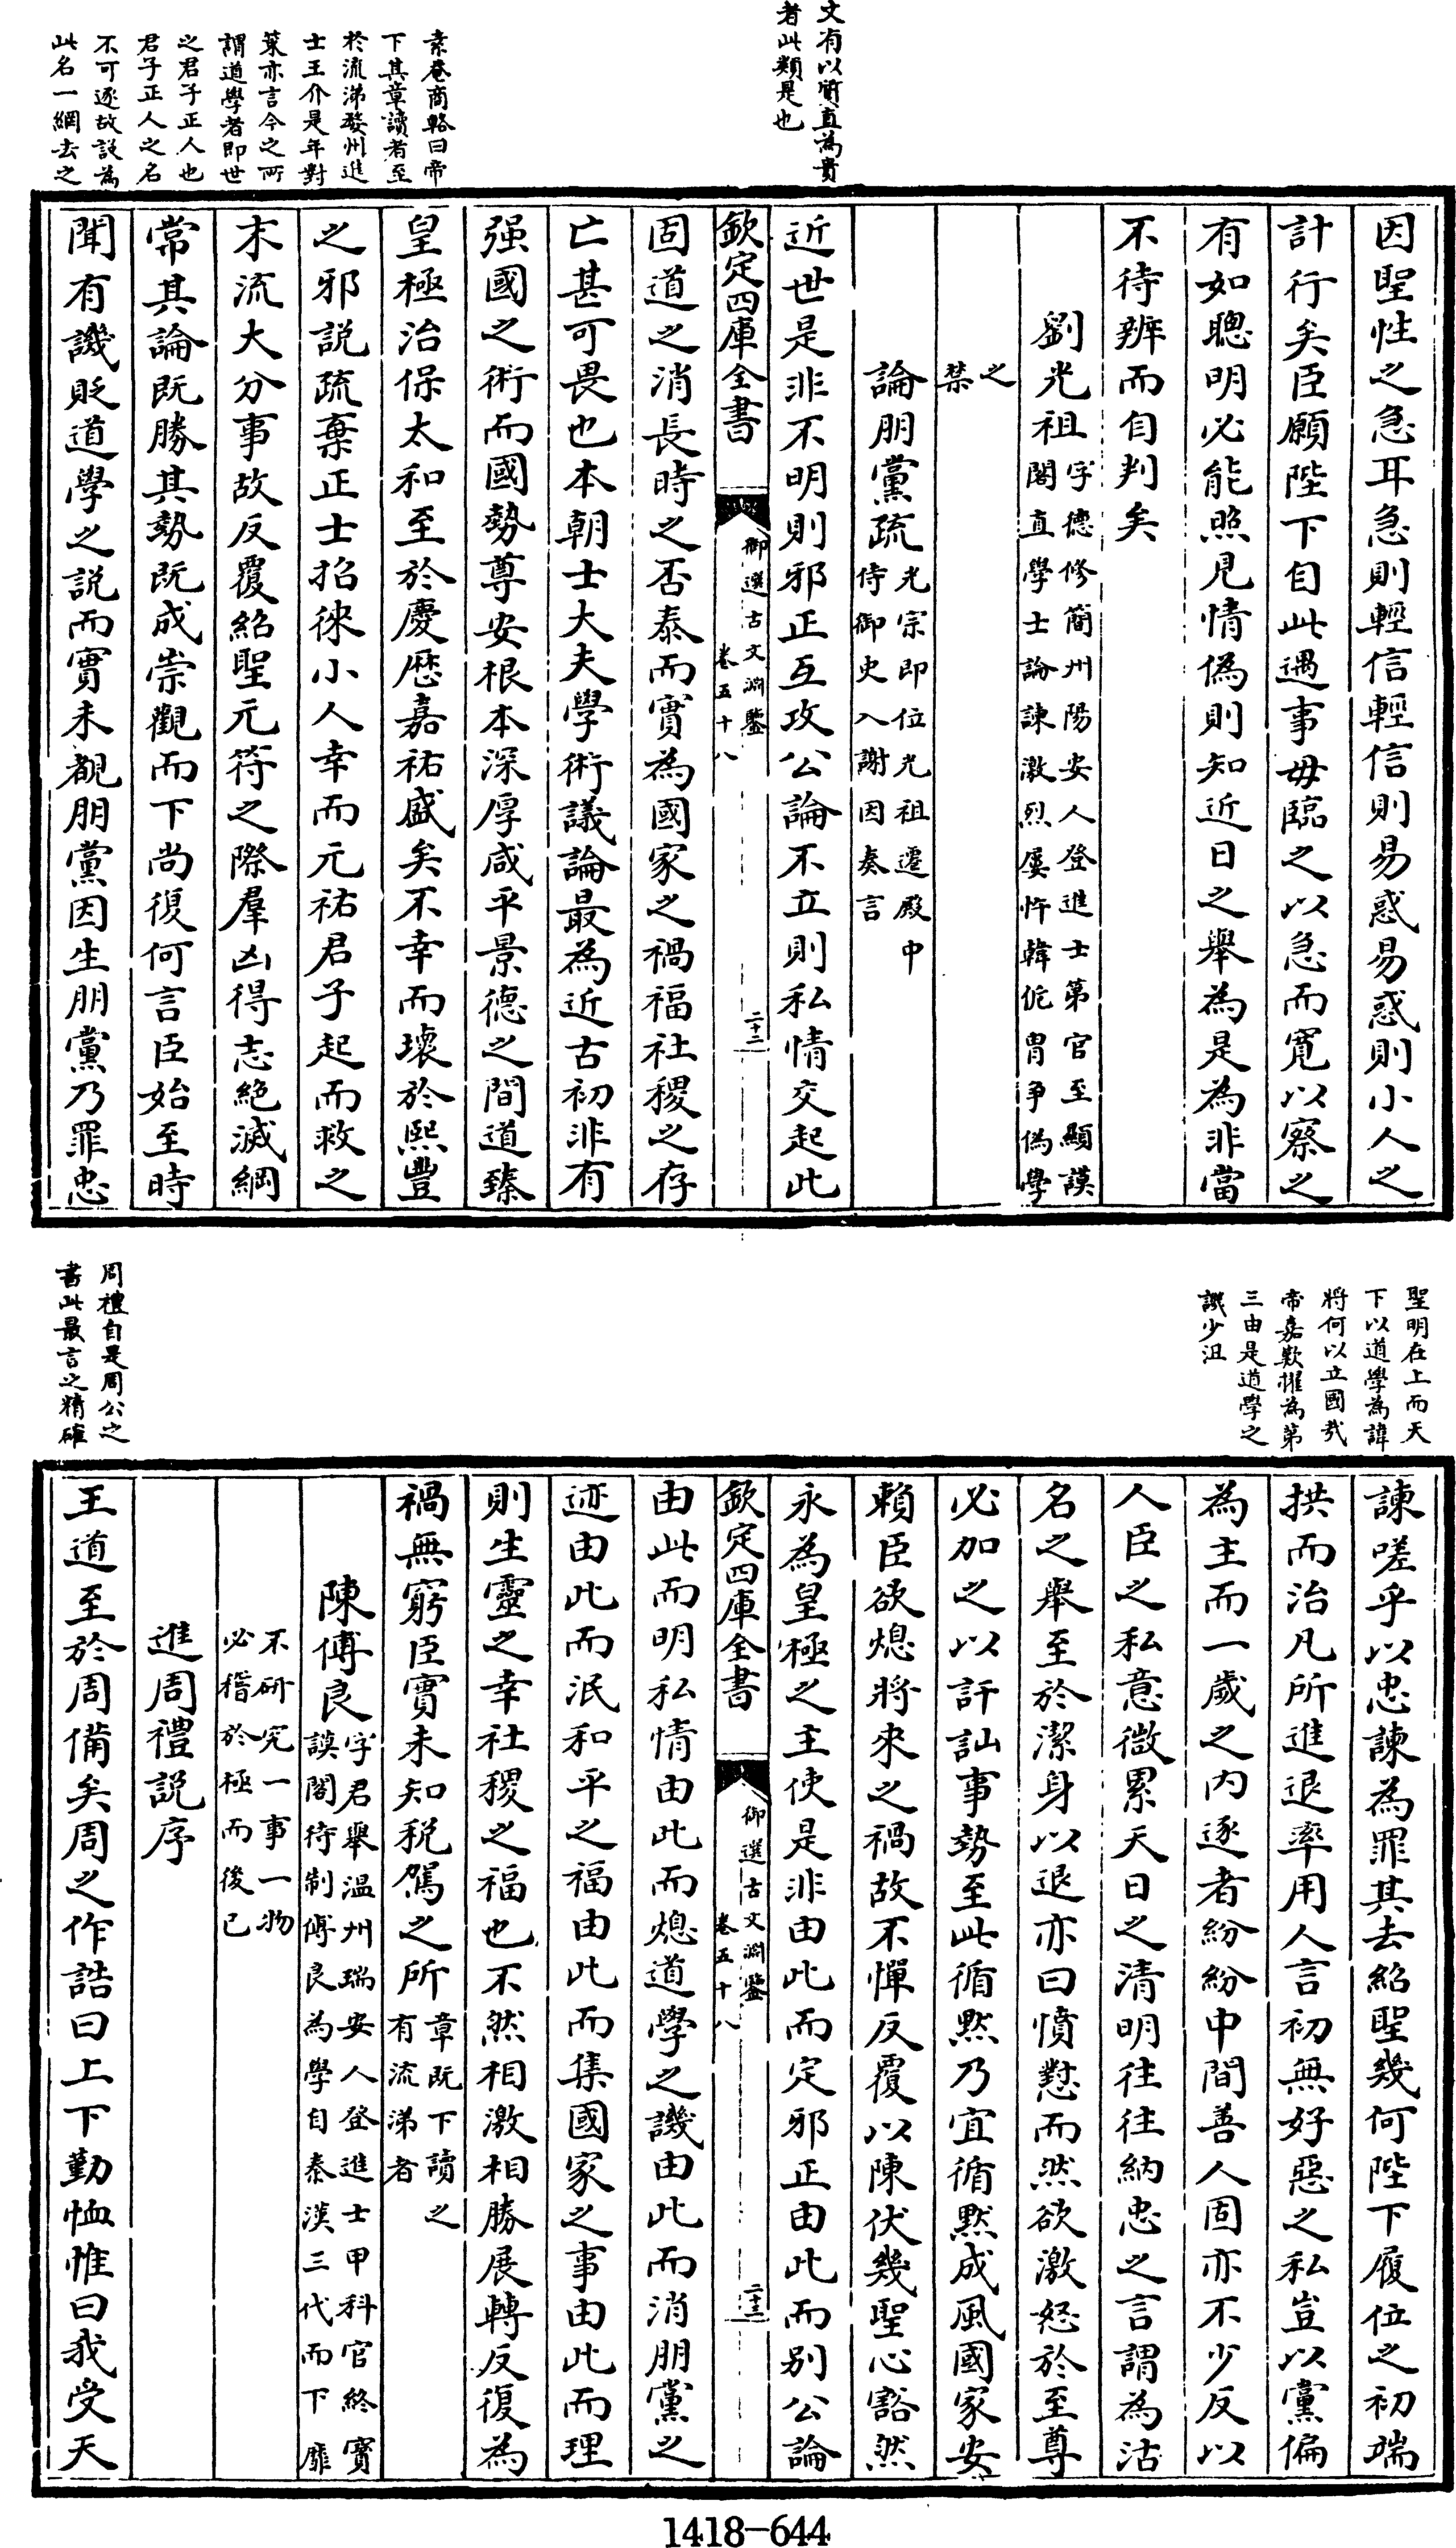 文有以質直為貴
者此類是也
素菴商輅曰帝
下其章讀者至
於流涕婺州進
士王介是年對
策亦言今之所
謂道學者即世
之君子正人也
君子正人之名
不可逐故設為
此名一網去之
因聖性之急耳急則輕信輕信則易惑易惑則小人之
計行矣臣願陛下自此遇事毋臨之以急而寛以察之
有如聰明必能照見情偽則知近日之舉為是為非當
不待辨而自判矣
劉光祖字德修簡州陽安人登進士第官至顯謨
閣直學士論諫激烈屢忤韓侂胄爭偽學
之
禁
論朋黨疏光宗即位光祖遷殿中
侍御史入謝因奏言
近世是非不明則邪正互攻公論不立則私情交起此
欽定四庫全書
御選古文淵鑒
卷五十八
二十二
固道之消長時之否泰而實為國家之禍福社稷之存
亡甚可畏也本朝士大夫學術議論最為近古初非有
强國之術而國勢尊安根本深厚咸平景德之間道臻
皇極治保太和至於慶歴嘉祐盛矣不幸而壞於熙豐
之邪説疏棄正士招徠小人幸而元祐君子起而救之
末流大分事故反覆紹聖元符之際羣凶得志絶滅綱
常其論既勝其勢既成崇觀而下尚復何言臣始至時
聞有譏貶道學之説而實未覩朋黨因生朋黨乃罪忠
聖明在上而天
下以道學為諱
將何以立國哉
帝嘉歎擢為第
三由是道學之
譏少沮
周禮自是周公之
書此最言之精確
諫嗟乎以忠諫為罪其去紹聖幾何陛下履位之初端
拱而治凡所進退率用人言初無好惡之私豈以黨偏
為主而一歲之内逐者紛紛中間善人固亦不少反以
人臣之私意微累天日之清明往往納忠之言謂為沽
名之舉至於潔身以退亦曰憤懟而然欲激怒於至尊
必加之以訐訕事勢至此循黙乃宜循黙成風國家安
賴臣欲熄將來之禍故不憚反覆以陳伏幾聖心豁然
永為皇極之主使是非由此而定邪正由此而别公論
欽定四庫全書
御選古文淵鑒
卷五十八
二十三
由此而明私情由此而熄道學之譏由此而消朋黨之
迹由此而泯和平之福由此而集國家之事由此而理
則生靈之幸社稷之福也不然相激相勝展轉反復為
禍無窮臣實未知税駕之所章既下讀之
有流涕者
陳傅良字君舉温州瑞安人登進士甲科官終寳
謨閣待制傅良為學自秦漢三代而下靡
不研究一事一物
必稽於極而後已
進周禮説序
王道至於周備矣周之作誥曰上下勤恤惟曰我受天
1418-644